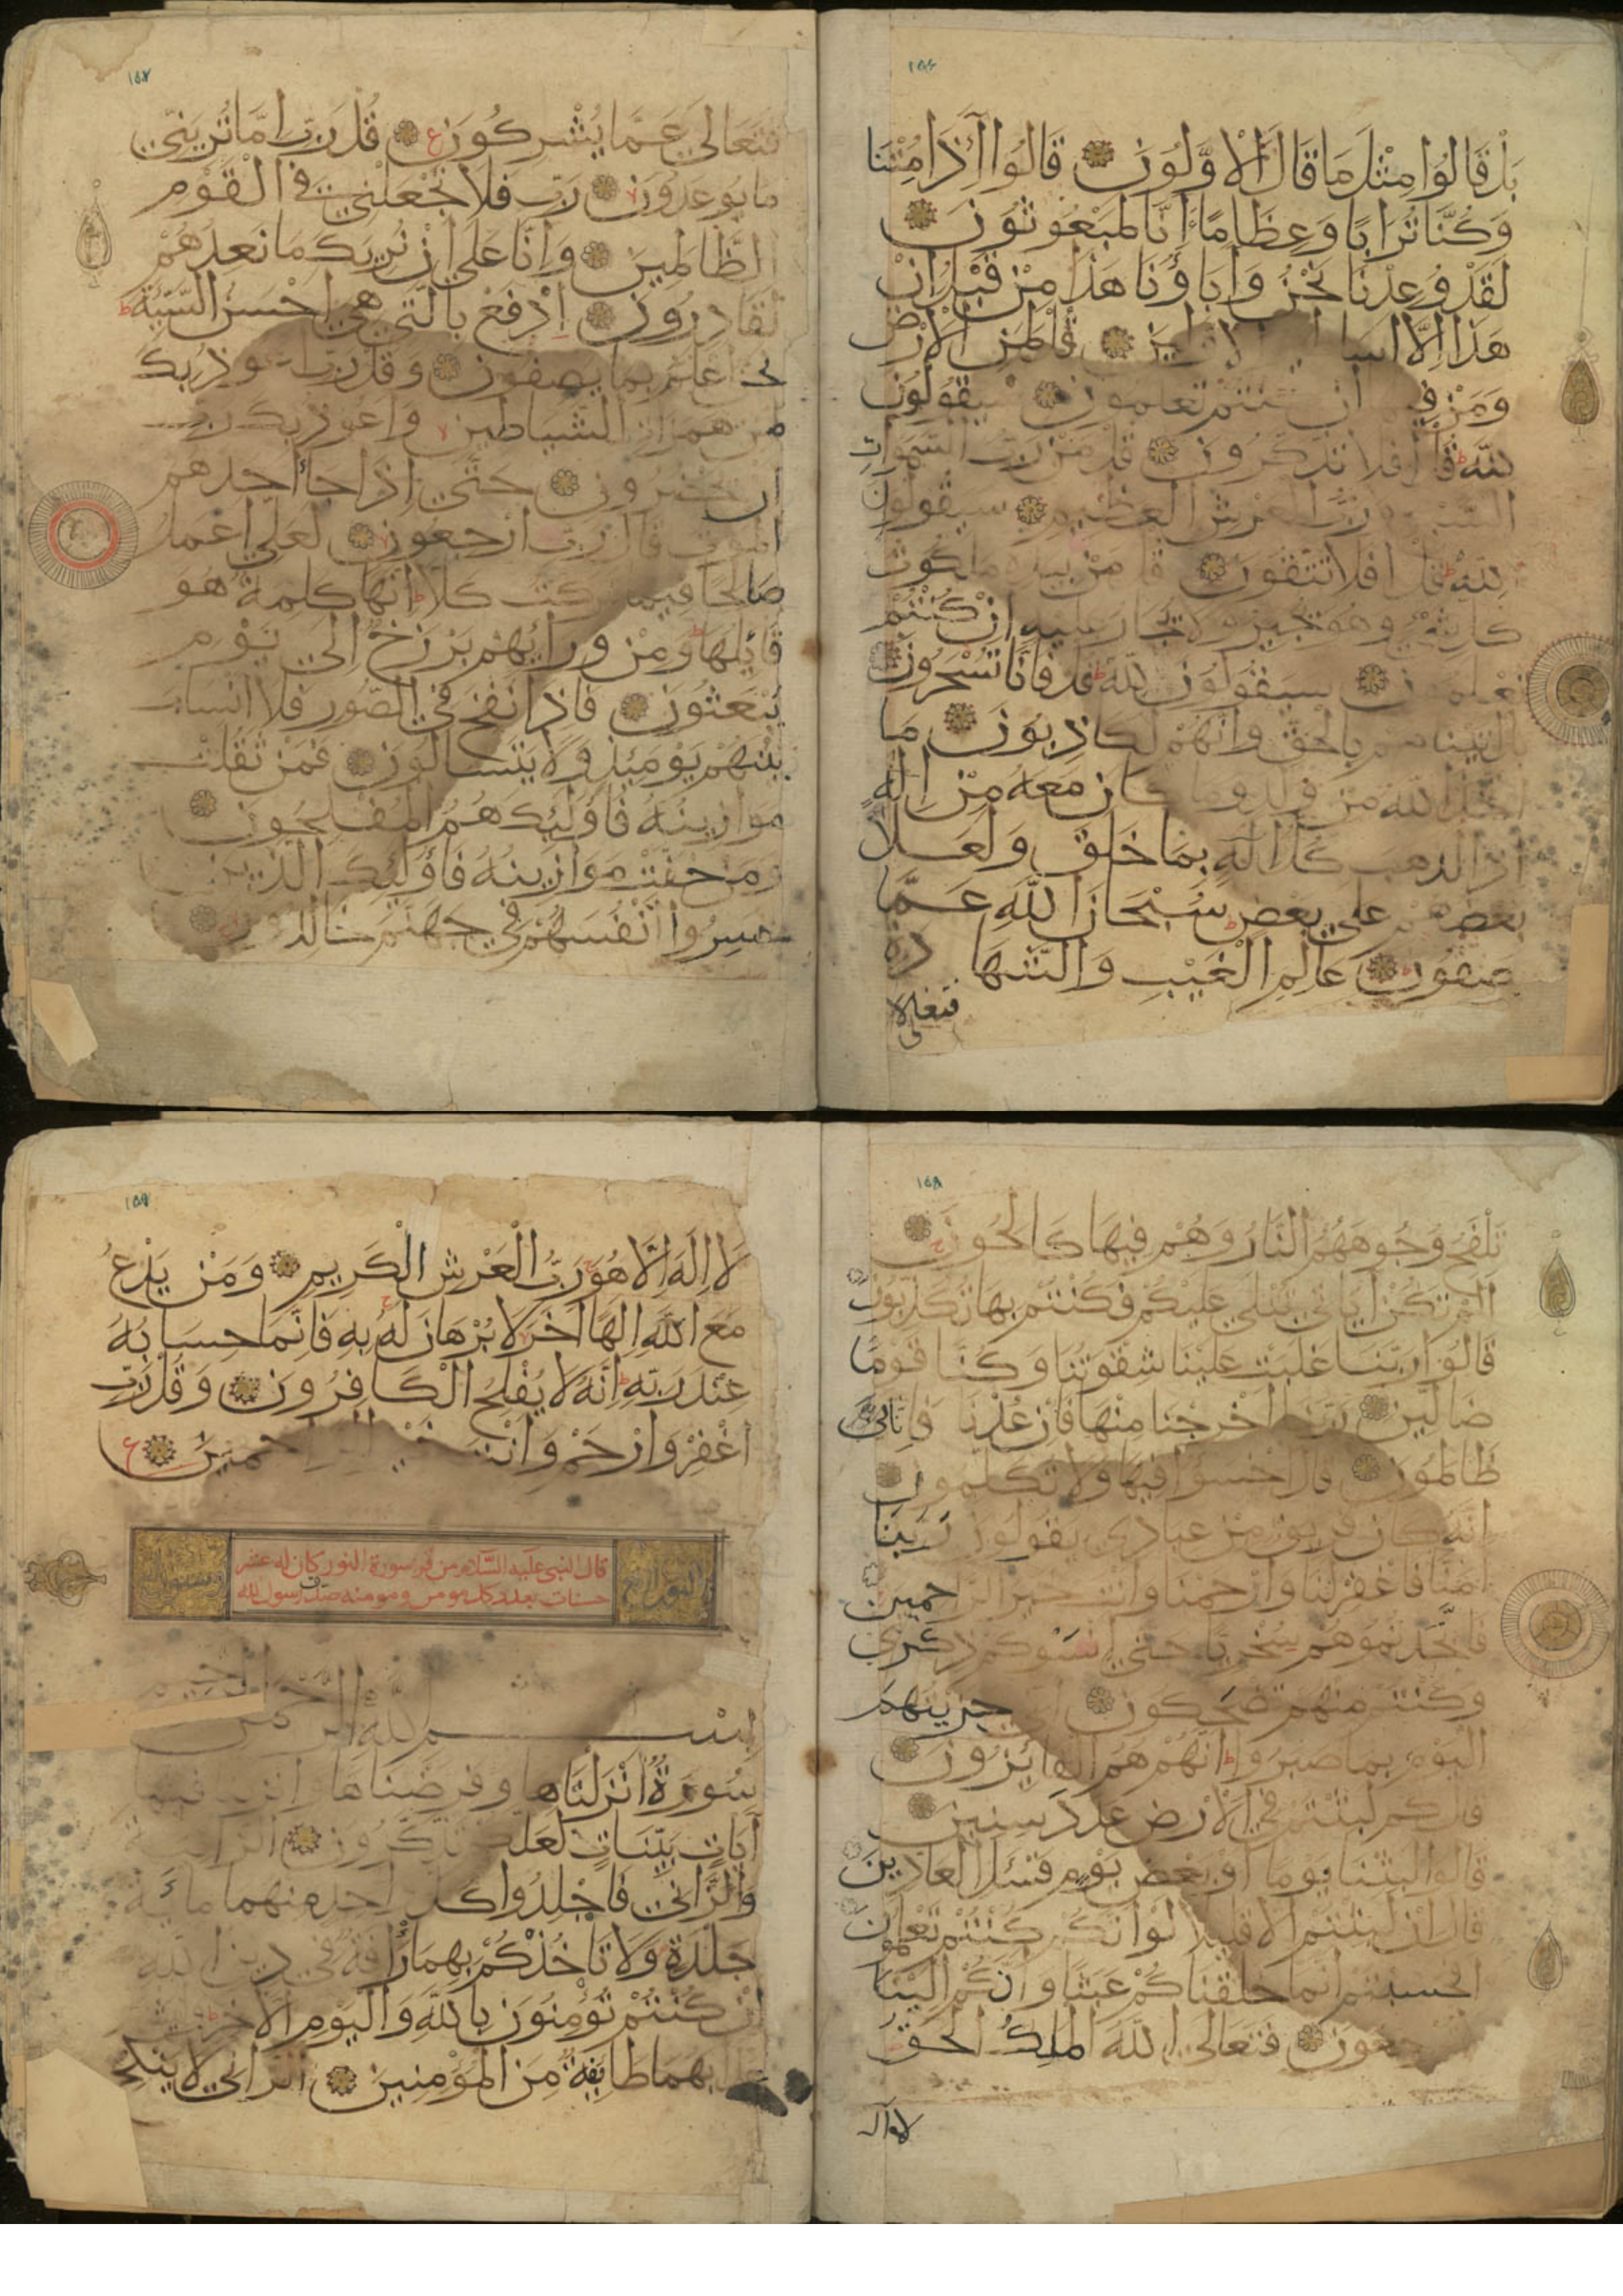 ١٥٦
بَلْ قَالُوا مِثْلَ مَا قَالَ الْاَوَّلُونَ قَالُوا اَئِذَا مِتْنَا
وَكُنَّا تُرَابًا وَعِظَامًا ءَاِنَّا لَمَبْعُوثُونَ
لَقَدْ وُعِدْنَا نَحْنُ وَاٰبَاؤُنَا هَذَا مِنْ قَبْلُ اِنْ
هَذَا اِلَّا اسا الاولين قل لمن الْاَرْضُ
وَمَنْ في ان كنتم تعلمون سيقولون
لله قل افلا تذكرون قل من رب السموات
السبع ورب العرش العظيم سيقولون
لله قل افلا تتقون قل من بيده ملكوت
كل شئ وهو يجير ولا يجار عليه اِنْ كُنْتُمْ
تعلمون سيقولون لله قل فَاَنّٰا تُسْحَرُونَ
بل اتيناهم بالحق وانهم لكاذبون مَا
اتخذ الله من ولد وما كَانَ مَعَهُ مِنْ اِلَهٍ
اذا لذهب كل اله بِمَا خَلَقَ وَلَعَلَا
بعضهم على بعض سُبْحَانَ اللهِ عَمَّا
يصفون عَالِمِ الْغَيْبِ وَالشَّهَا دة
فتعالى
١٥٧
فَتَعَالَى عَمَّا يُشْرِكُونَ ع قُلْ رَبِّ اِمَّا تُرِيَنّي
مَا يُوعَدُونَ رَبِّ فَلَا تَجْعَلْنِي فِي الْقَوْمِ
الظَّالِمِينَ وَاِنَّا عَلَى اَنْ نُرِيَكَ مَا نَعِدُهُمْ
لَقَادِرُونَ اِدْفَعْ بِالَّتِي هِيَ اَحْسَنُ السَّيِّئَةَ ط
نحن اعلم بما يصفون وقل رب اعوذ بك
من همزات الشياطين واعوذ بك رب
ان يحضرون حتى اذا جاء احدهم
الموت قال رب ارجعون لعلي اعمل
صالحا فيما تركت كلا انها كلمة هُوَ
قَائِلُهَا وَمِنْ ورائهم بَرْزَخٌ اِلَى يَوْمِ
يُبْعَثُونَ فَاِذَا نُفِخَ فِي الصُّورِ فَلَا اَنْسَابَ
بَيْنَهُمْ يَوْمَئِذٍ وَلَا يَتَسَاءَلُونَ فَمَنْ ثَقُلَتْ
مَوَازِينُهُ فَاُولَئِكَ هُمُ الْمُفْلِحُونَ
وَمَنْ خَفَّتْ مَوَازِينُهُ فَاُولَئِكَ الَّذِينَ
خَسِرُوا اَنْفُسَهُمْ فِي جَهَنَّمَ خَالِدُونَ
١٥٨
تَلْفَحُ وُجُوهَهُمُ النَّارُ وَهُمْ فِيهَا كَالِحُونَ
اَلَمْ تَكُنْ اٰيَاتِي تُتْلَى عَلَيْكُمْ فَكُنْتُمْ بِهَا تُكَذِّبُونَ
قَالُوا رَبَّنَا غَلَبَتْ عَلَيْنَا شِقْوَتُنَا وَكُنَّا قَوْمًا
ضَالِّينَ رَبَّنَا اَخْرِجْنَا مِنْهَا فَاِنْ عُدْنَا فَاِنَّا
ظَالِمُونَ قَالَ اخْسَؤُا فِيهَا وَلَا تُكَلِّمُونِ
انه كان فريق من عبادي يقولون رَبَّنَا
اٰمَنَّا فَاغْفِرْ لَنَا وَارْحَمْنَا وَاَنْتَ خَيْرُ الرَّاحِمِينَ
فاتخذتموهم سخريا حتى انسوكم ذكري
وكنتم منهم تضحكون اني جزيتهم
اليوم بما صبروا انهم هم الفائزون
قال كم لبثتم في الْاَرْضِ عَدَدَ سِنِينَ
قالوا لبثنا يوما او بَعْضَ يَوْمٍ فَسْئَلِ الْعَادِّينَ
قال ان لبثتم الا قليلا لَوْ اَنَّكُمْ كُنْتُمْ تَعْلَمُونَ
افحسبتم انما خلقناكم عَبَثًا وَاَنَّكُمْ اِلَيْنَا
ترجعون فَتَعَالَى اللهُ الْمَلِكُ الْحَقُّ
لا اله
١٥٩
لَا اِلَهَ اِلَّا هُوَ رَبُّ الْعَرْشِ الْكَرِيمِ وَمَنْ يَدْعُ
مَعَ اللهِ اِلَهًا اٰخَرَ لَا بُرْهَانَ لَهُ بِهِ فَاِنَّمَا حِسَابُهُ
عِنْدَ رَبِّهِ اِنَّهُ لَا يُفْلِحُ الْكَافِرُونَ وَقُلْ رَبِّ
اغْفِرْ وَارْحَمْ وَاَنْتَ خَيْرُ الراحمين ع
قال النبي عليه السلام من قرا سورة النور كان له عشر
حسنات بعدد كل مومن ومومنه صدق رسول لله
بسم الله الرحمن الرحيم
سُورَةٌ اَنْزَلْنَاهَا وفرضناها وانزلنا فيها
اٰيَاتٍ بَيِّنَاتٍ لَعَلَّكُمْ تذكرون الزانية
وَالزَّانِي فَاجْلِدُوا كُلَّ واحد منهما مائة
جَلْدَةٍ وَلَا تَاْخُذْكُمْ بِهِمَا رَاْفَةٌ فِي دِينِ اللهِ
اِنْ كُنْتُمْ تُؤْمِنُونَ بِاللهِ وَالْيَوْمِ الْاٰخِرِ
بَهُمَا طَائِفَةٌ مِنَ الْمُؤْمِنِينَ الزَّانِي لَا يَنْكِحُ